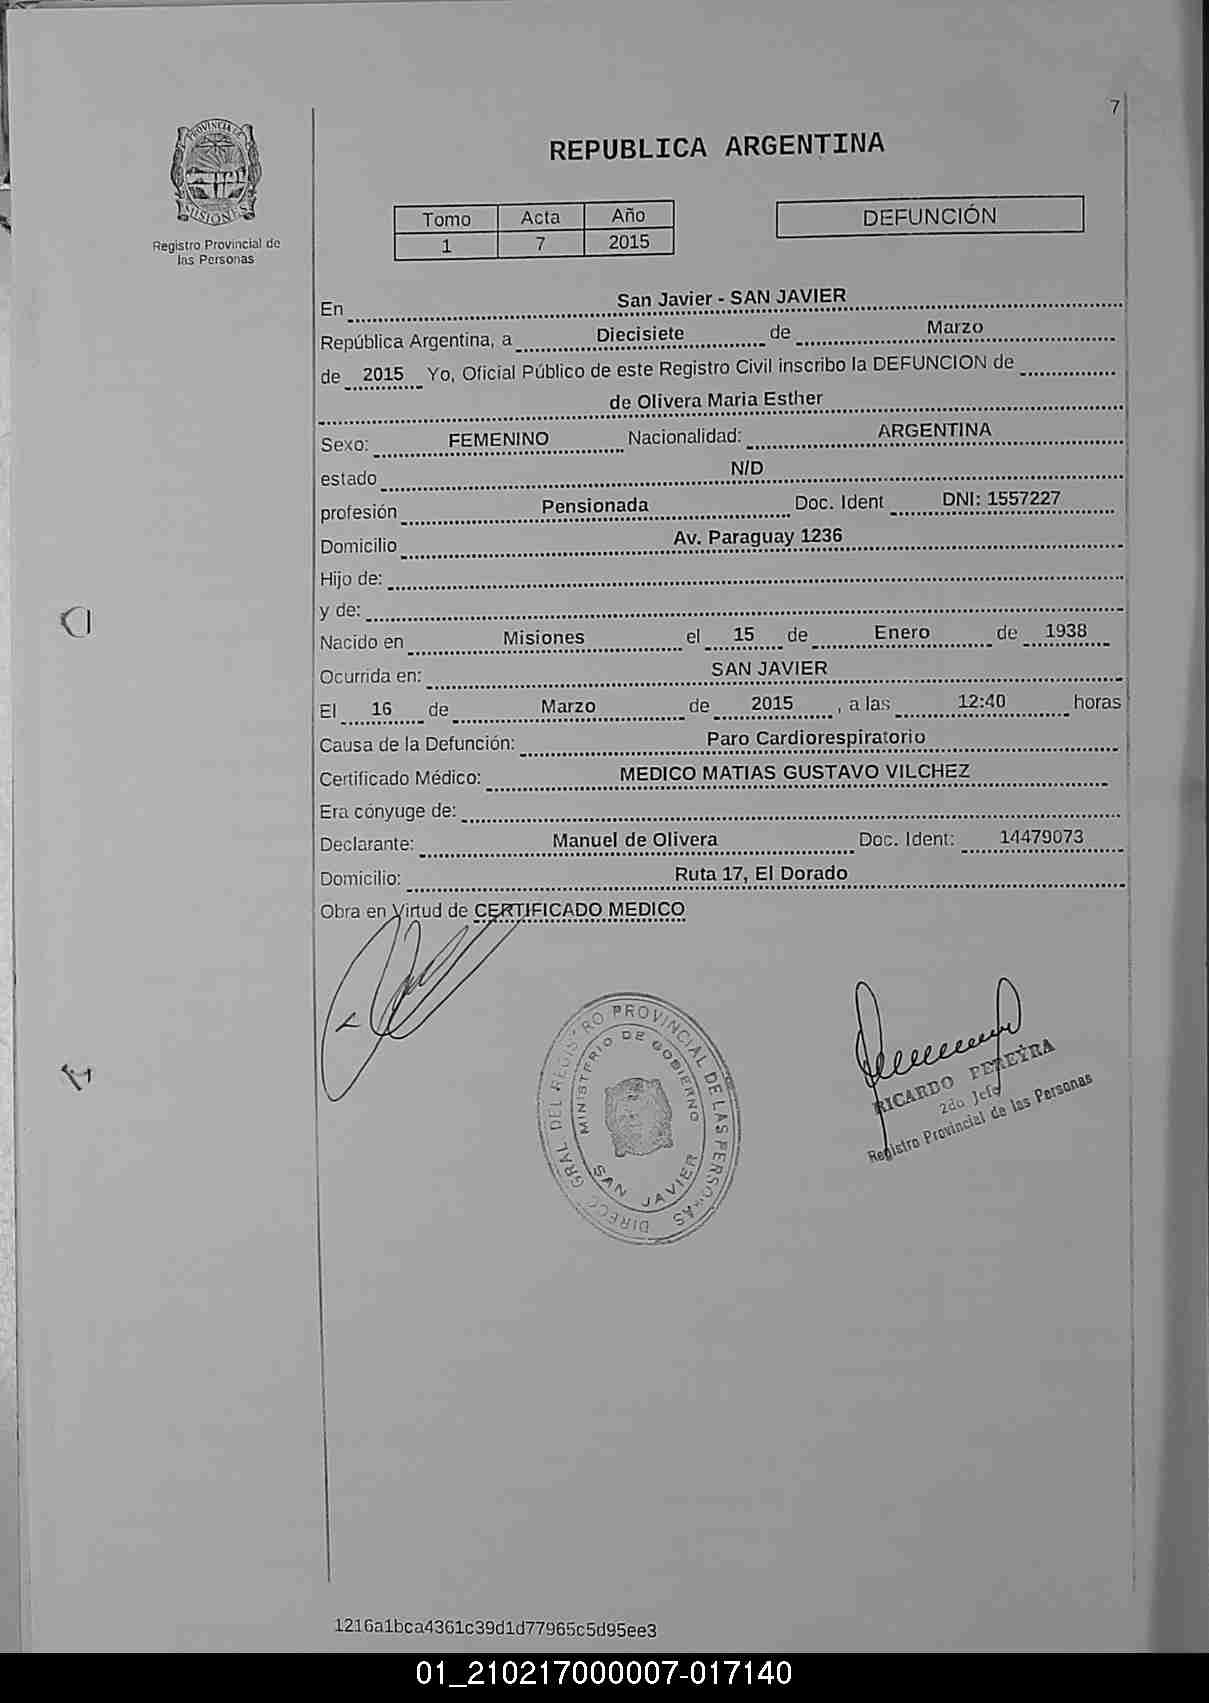 7
PROVINCIA DE
MISIONES
Registro Provincial de
las Personas
REPUBLICA ARGENTINA
Tomo Acta Año
1 7 2015
DEFUNCIÓN
En San Javier - SAN JAVIER
República Argentina, a Diecisiete de Marzo
de 2015 Yo, Oficial Público de este Registro Civil inscribo la DEFUNCION de
de Olivera Maria Esther
Sexo: FEMENINO Nacionalidad: ARGENTINA
estado N/D
profesión Pensionada Doc. Ident DNI: 1557227
Domicilio Av. Paraguay 1236
Hijo de:
y de:
Nacido en Misiones el 15 de Enero de 1938
Ocurrida en: SAN JAVIER
El 16 de Marzo de 2015 , a las 12:40 horas
Causa de la Defunción: Paro Cardiorespiratorio
Certificado Médico: MEDICO MATIAS GUSTAVO VILCHEZ
Era cónyuge de:
Declarante: Manuel de Olivera Doc. Ident: 14479073
Domicilio: Ruta 17, El Dorado
Obra en Virtud de CERTIFICADO MEDICO
DIRECC GRAL DEL REGISTRO PROVINCIAL DE LAS PERSONAS
MINISTERIO DE GOBIERNO
SAN JAVIER
RICARDO PEREYRA
2do Jefe
Registro Provincial de las Personas
1216a1bca4361c39d1d77965c5d95ee3
01_210217000007-017140